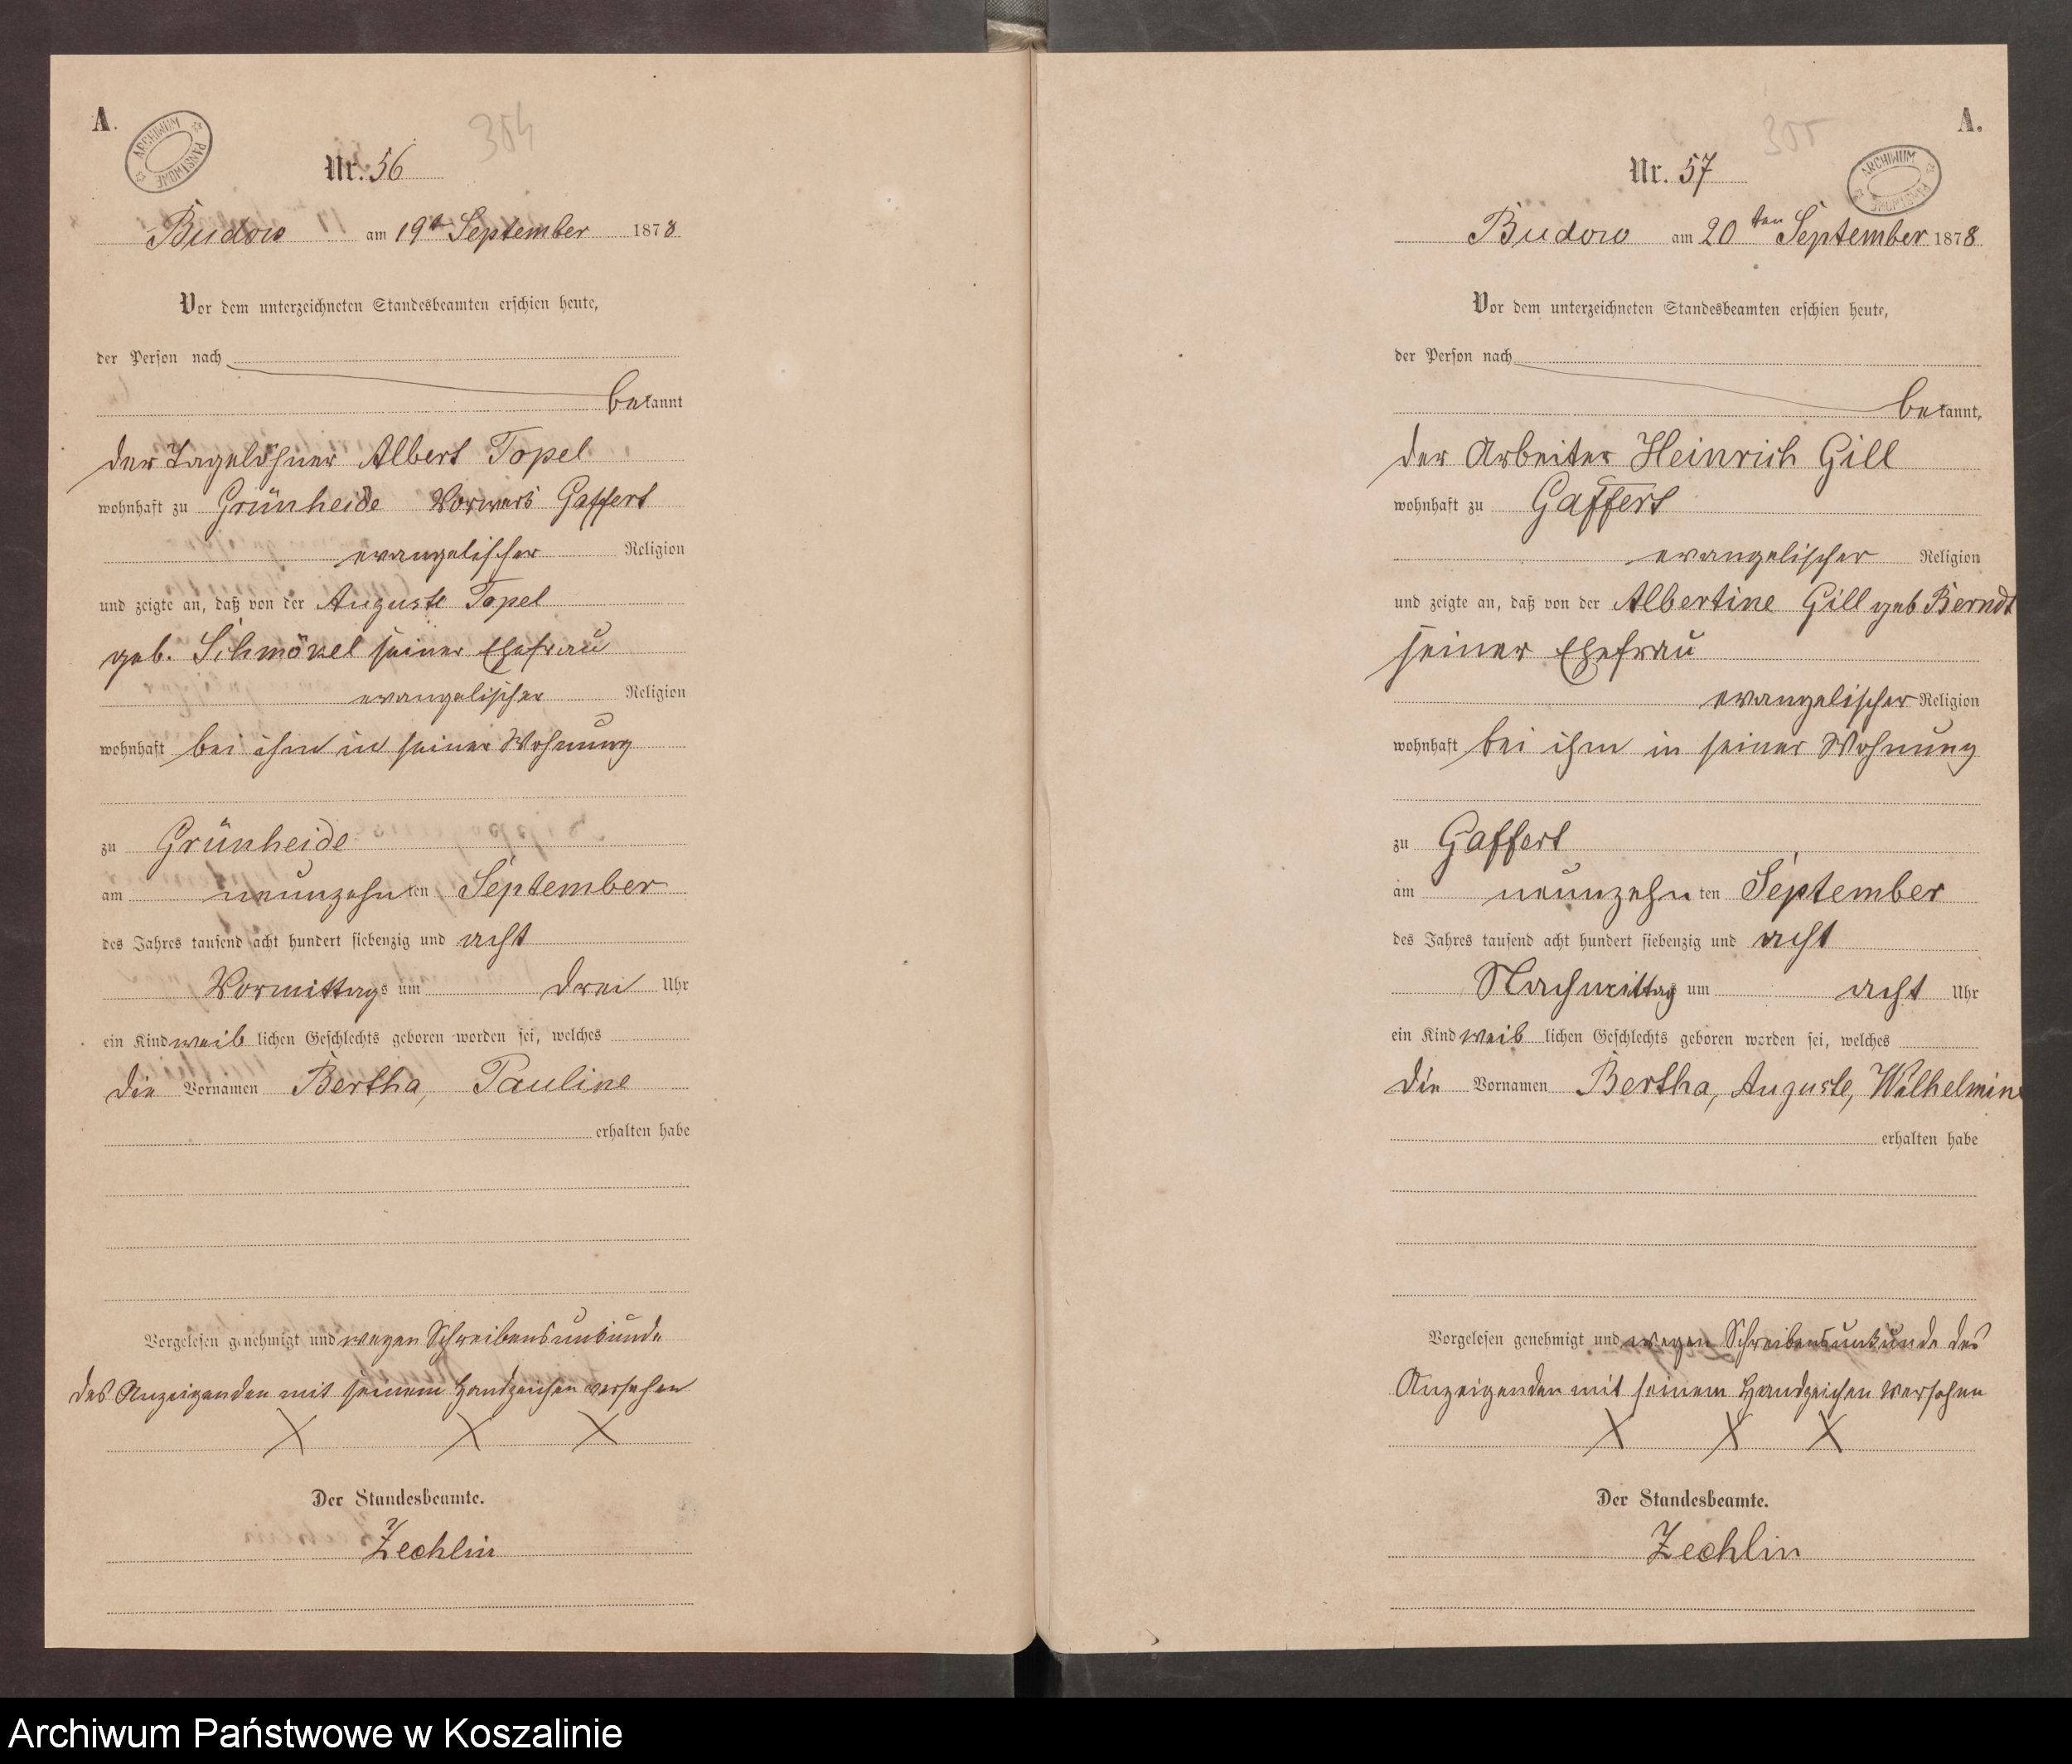 A.
ARCHIWUM PAŃSTWOWE
354
Nr. 56
Budow am 19t September 1878
Vor dem unterzeichneten Standesbeamten erschien heute,
der Person nach
bekannt
der Tagelöhner Albert Topel
wohnhaft zu Grünheide Vorwerk Gaffert
evangelischer Religion
und zeigte an, daß von der Auguste Topel
geb. Schmökel seiner Ehefrau
evangelischer Religion
wohnhaft bei ihm in seiner Wohnung
zu Grünheide
am neunzehnten September
des Jahres tausend acht hundert siebenzig und acht
Vormittags um drei Uhr
ein Kind weiblichen Geschlechts geboren worden sei, welches
die Vornamen Bertha, Pauline
erhalten habe
Vorgelesen genehmigt und wegen Schreibensunkunde
des Anzeigenden mit seinem Handzeichen versehen
X X X
Der Standesbeamte.
Zechlin
A.
305
ARCHIWUM PAŃSTWOWE
Nr. 57
Budow am 20ten September 1878
Vor dem unterzeichneten Standesbeamten erschien heute,
der Person nach
bekannt,
der Arbeiter Heinrich Gill
wohnhaft zu Gaffert
evangelischer Religion
und zeigte an, daß von der Albertine Gill geb Berndt
seiner Ehefrau
evangelischer Religion
wohnhaft bei ihm in seiner Wohnung
zu Gaffert
am neunzehnten September
des Jahres tausend acht hundert siebenzig und acht
Nachmittag um acht Uhr
ein Kind weiblichen Geschlechts geboren worden sei, welches
die Vornamen Bertha, Auguste, Wilhelmine
erhalten habe
Vorgelesen genehmigt und wegen Schreibensunkunde des
Anzeigenden mit seinem Handzeichen versehen
X X X
Der Standesbeamte.
Zechlin
Archiwum Państwowe w Koszalinie